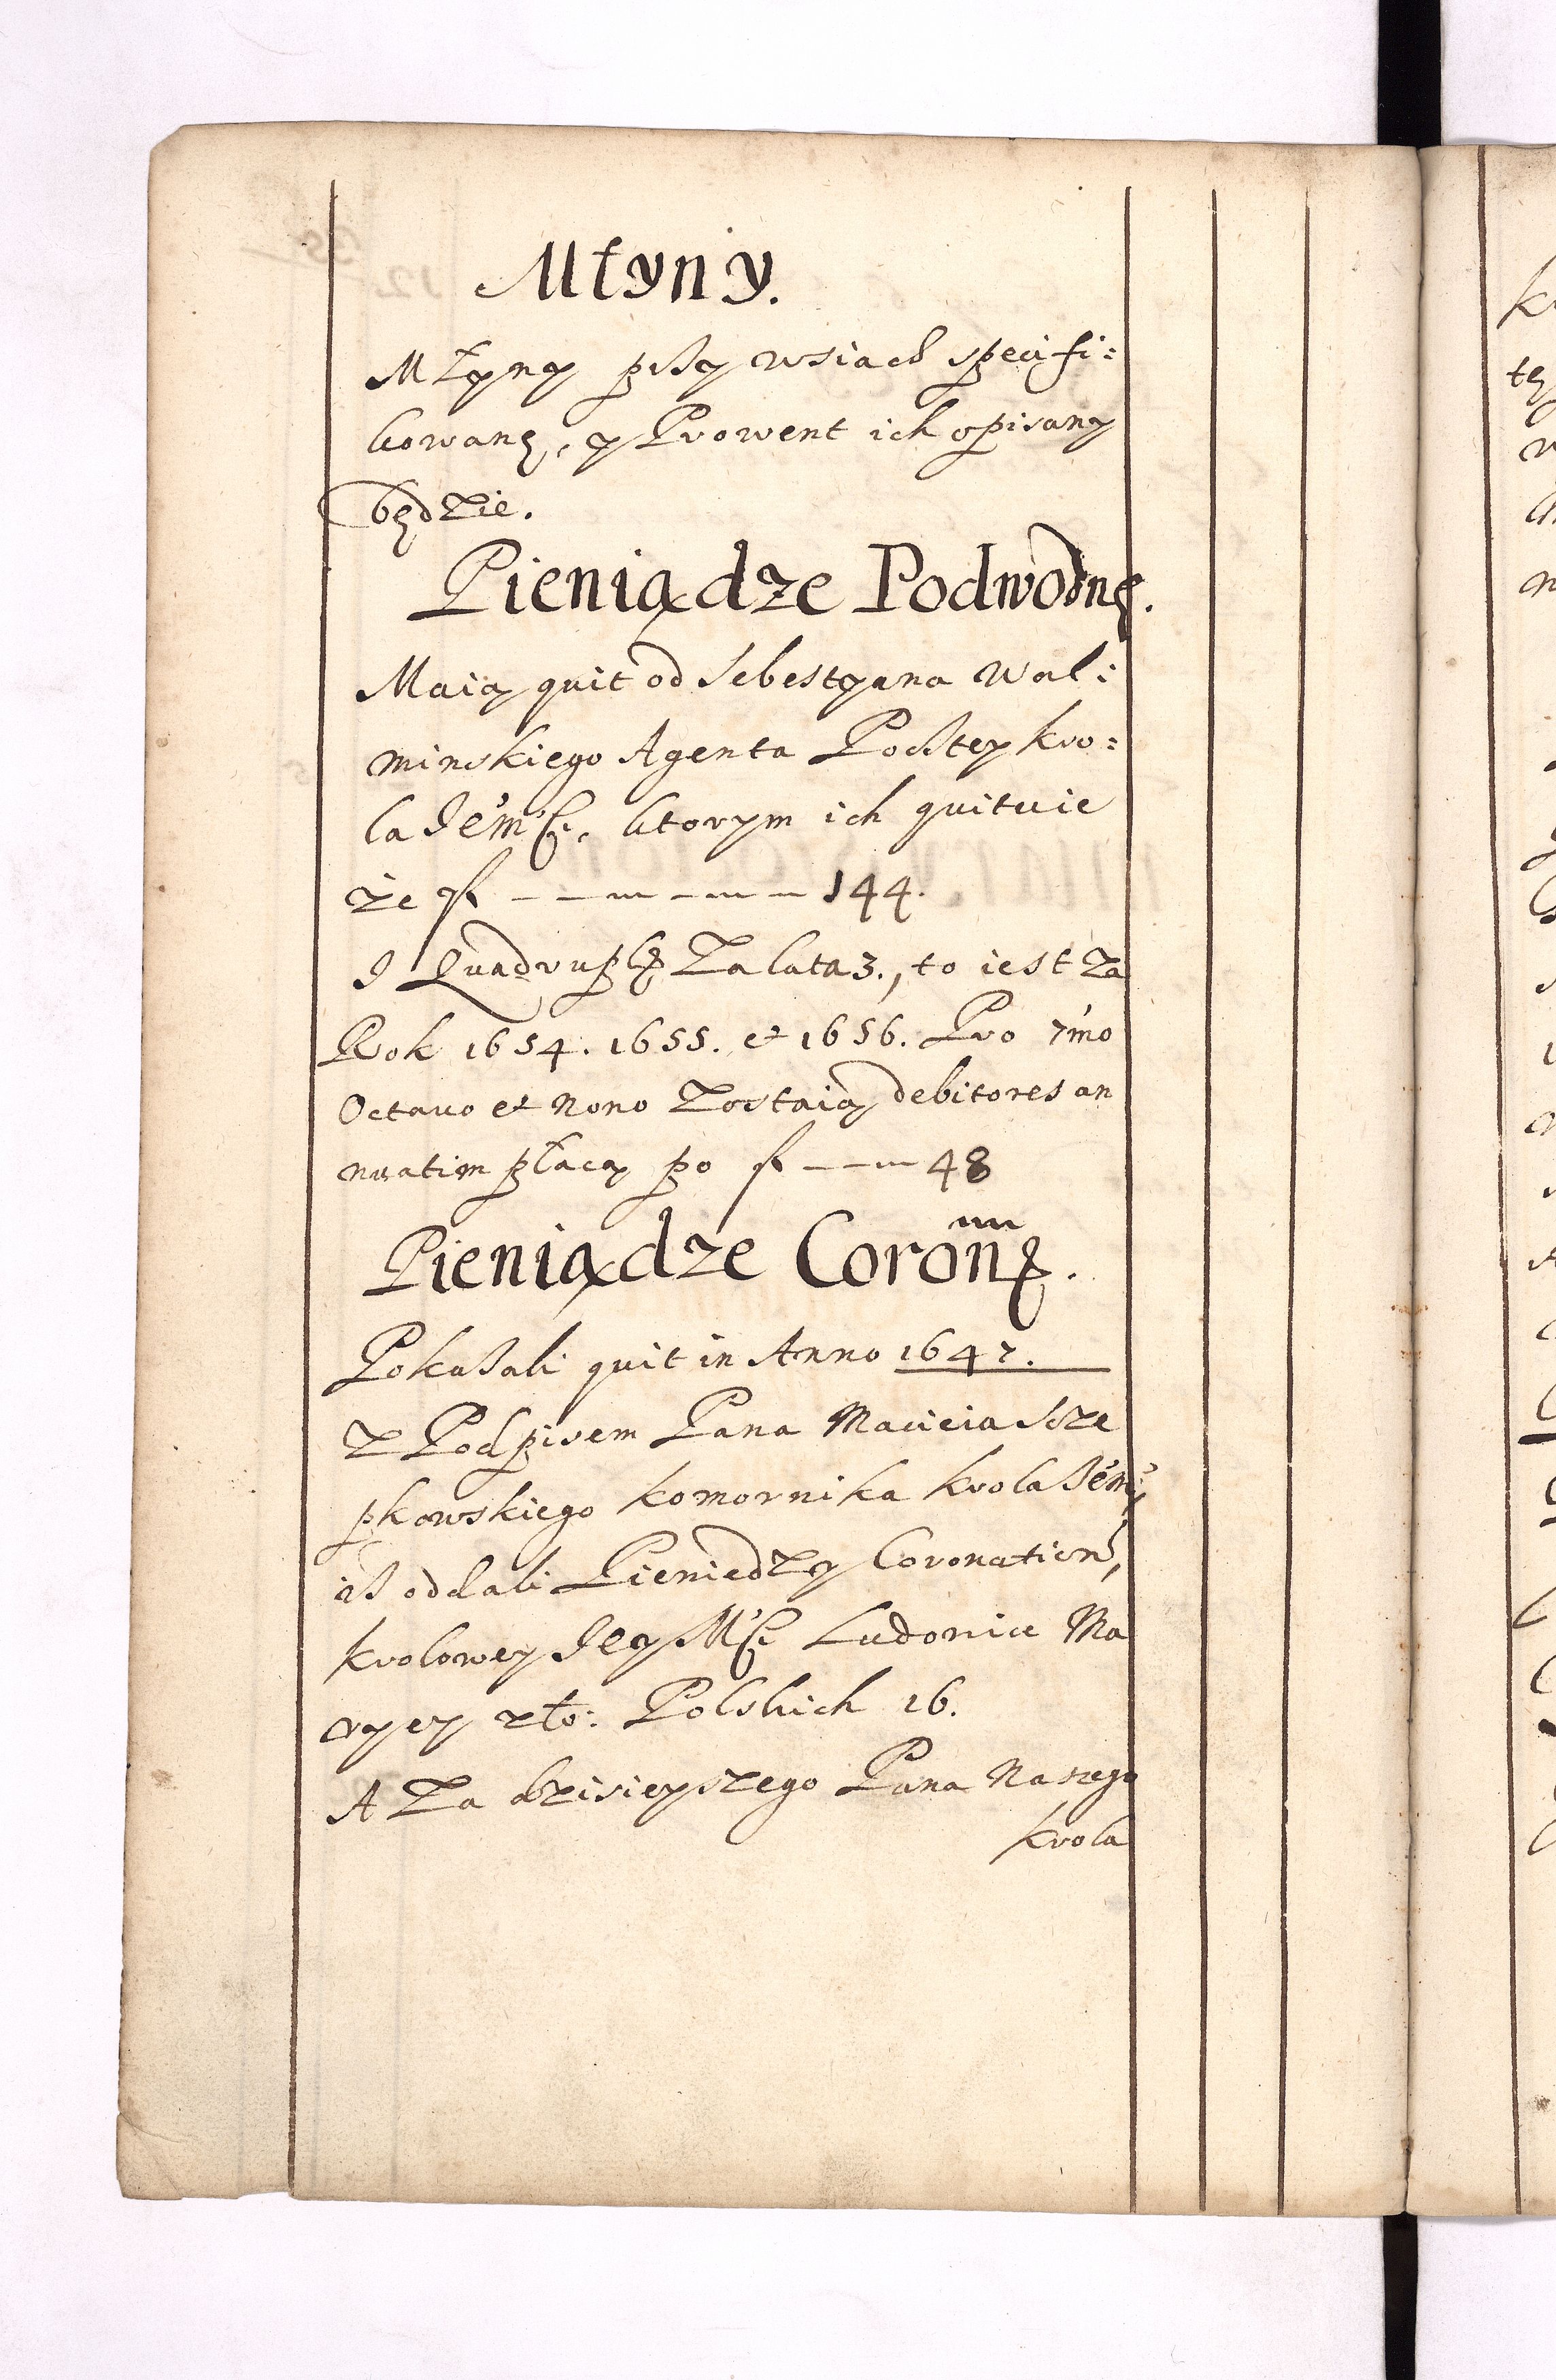 Młyny.
Młyny przy wsiach specifi:
kowanę, y Prowent ich opisany
będzie.
Pieniądze Podwodnę.
Maią quit od Sebestyana Wol:
minskiego Agenta Pocztey kro:
la Je͠m͠ści. ktorym ich quituie
że fl — — — — — 144.
J Quadruplę Za lata 3., to iest Za
Rok 1654. 1655. et 1656. Pro 7mo
Octauo et Nono Zostaią debitores an
nuatim płacą po fl — — 48
Pieniądze Coronnę.
Pokazali quit in Anno 1647.
Z Podpisem Pana Macieia Szcze
pkowskiego Komornika Krola Jem,
iż oddali Pieniedzy Coronation,
Krolowey Jey Mści Ludovice Ma
ryey zło: Polskich 16.
A Za dzisieyszego Pana Naszego
Krola